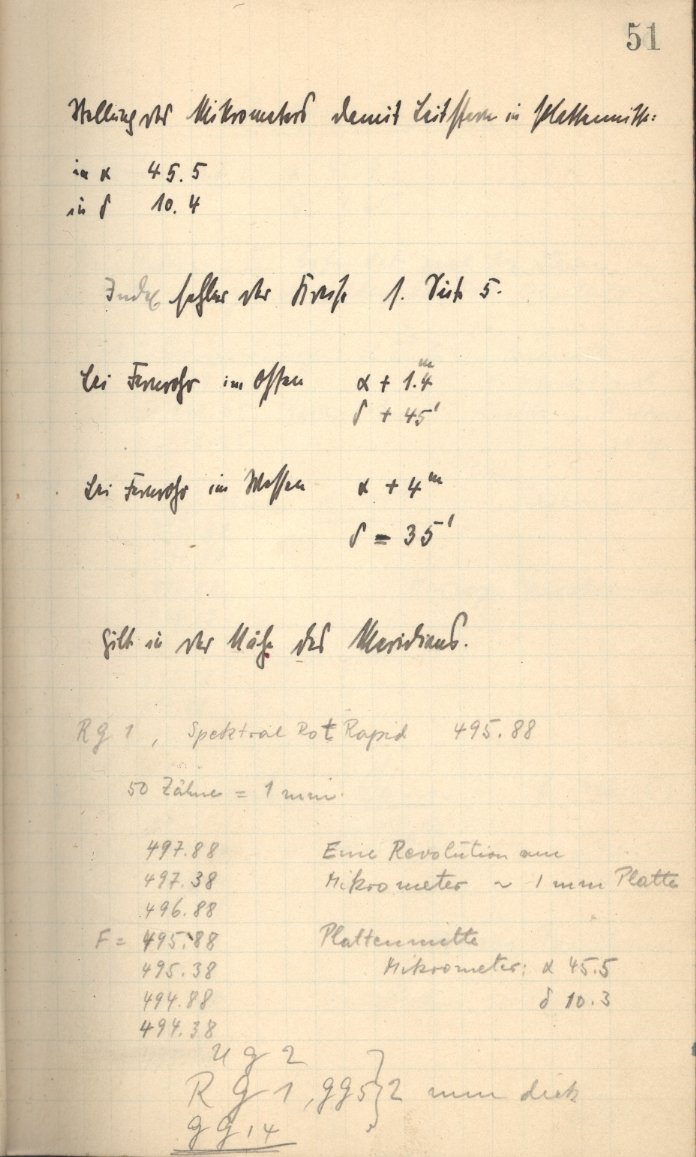 51
Stellung des Mikrometers damit Leitstern in Plattenmitte:
in α 45.5
in δ 10.4
Indexfehler der Kreise 1. Seite 5.
bei Fernrohr im Osten α + 1.4ᵐ
δ + 45'
bei Fernrohr im Westen α + 4ᵐ
δ = 35'
Gilt in der Nähe des Meridians.
Rg 1, Spektral Rot Rapid 495.88
50 Zähne = 1 mm.
497.88 Eine Revolution am
497.38 Mikrometer ~ 1 mm Platte
496.88
F = 495.88 Plattenmitte
495.38 Mikrometer: α 45.5
494.88 δ 10.3
494.38
ug 2
Rg 1, gg5 } 2 mm dick
gg 14